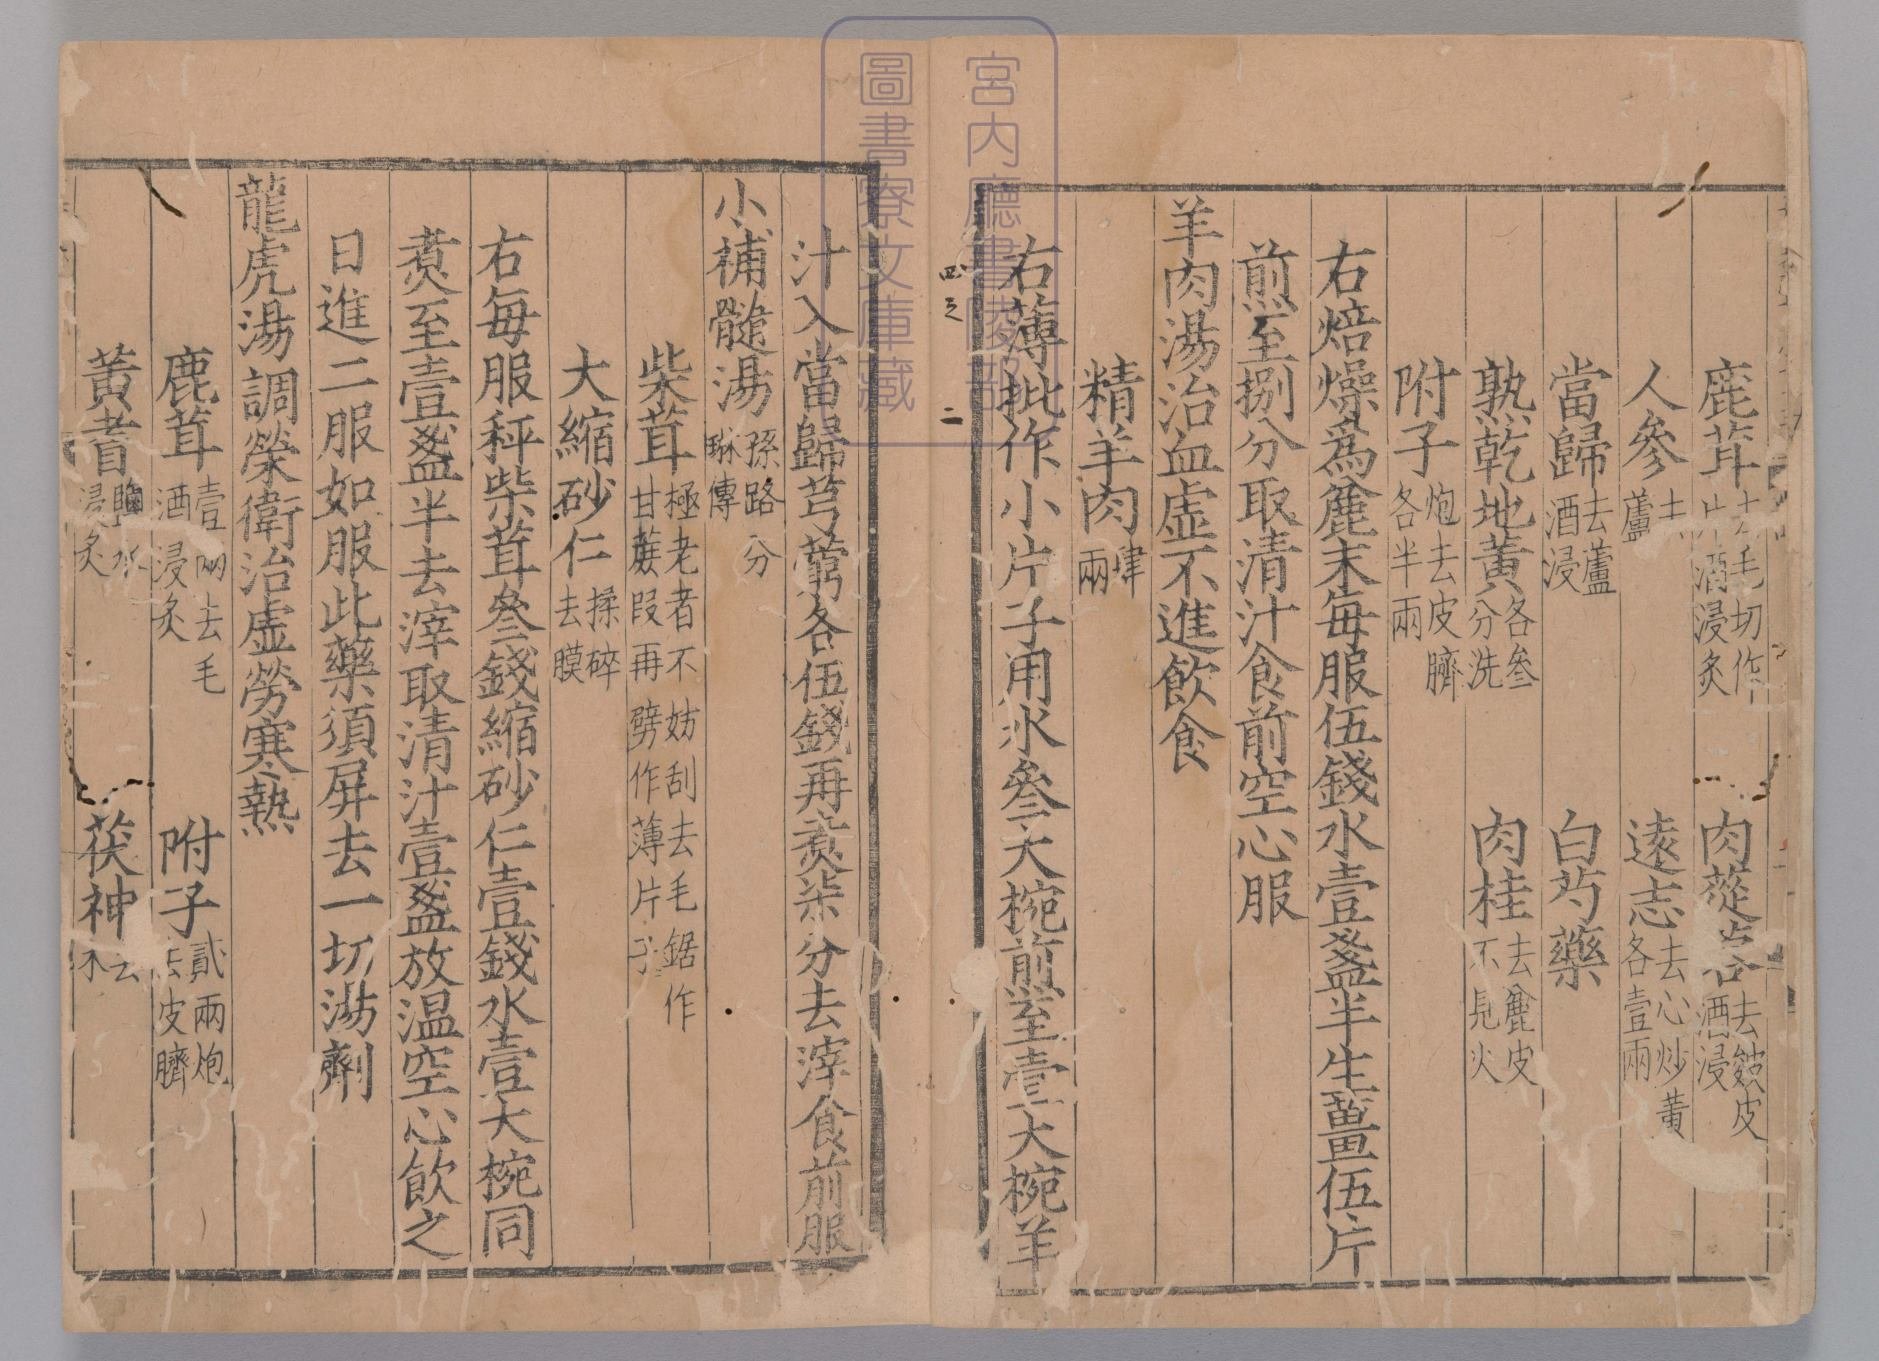 鹿茸去毛切作片酒浸炙　肉蓯蓉去皴皮酒浸
人參去蘆　遠志去心炒黃各壹兩
當歸去蘆酒浸　白芍藥
熟乾地黃各叁分洗　肉桂去麄皮不見火
附子炮去皮臍各半兩
右焙燥爲麄末每服伍錢水壹盞半生薑伍片
煎至捌分取清汁食前空心服
羊肉湯治血虛不進飲食
精羊肉肆兩
右薄批作小片子用水叁大椀煎至壹大椀羊
四之
二
汁入當歸芎藭各伍錢再煑柒分去滓食前服
小補髓湯孫路分琳傳
柴茸極老者不妨刮去毛鋸作甘蔗段再劈作薄片子
大縮砂仁揉碎去膜
右每服秤柴茸叁錢縮砂仁壹錢水壹大椀同
煑至壹盞半去滓取清汁壹盞放溫空心飲之
日進二服如服此藥須屏去一切湯劑
龍虎湯調榮衛治虛勞寒熱
鹿茸壹兩去毛酒浸炙　附子貳兩炮去皮臍
黃耆鹽水浸炙　茯神去木
宮内廳書陵部
圖書寮文庫藏